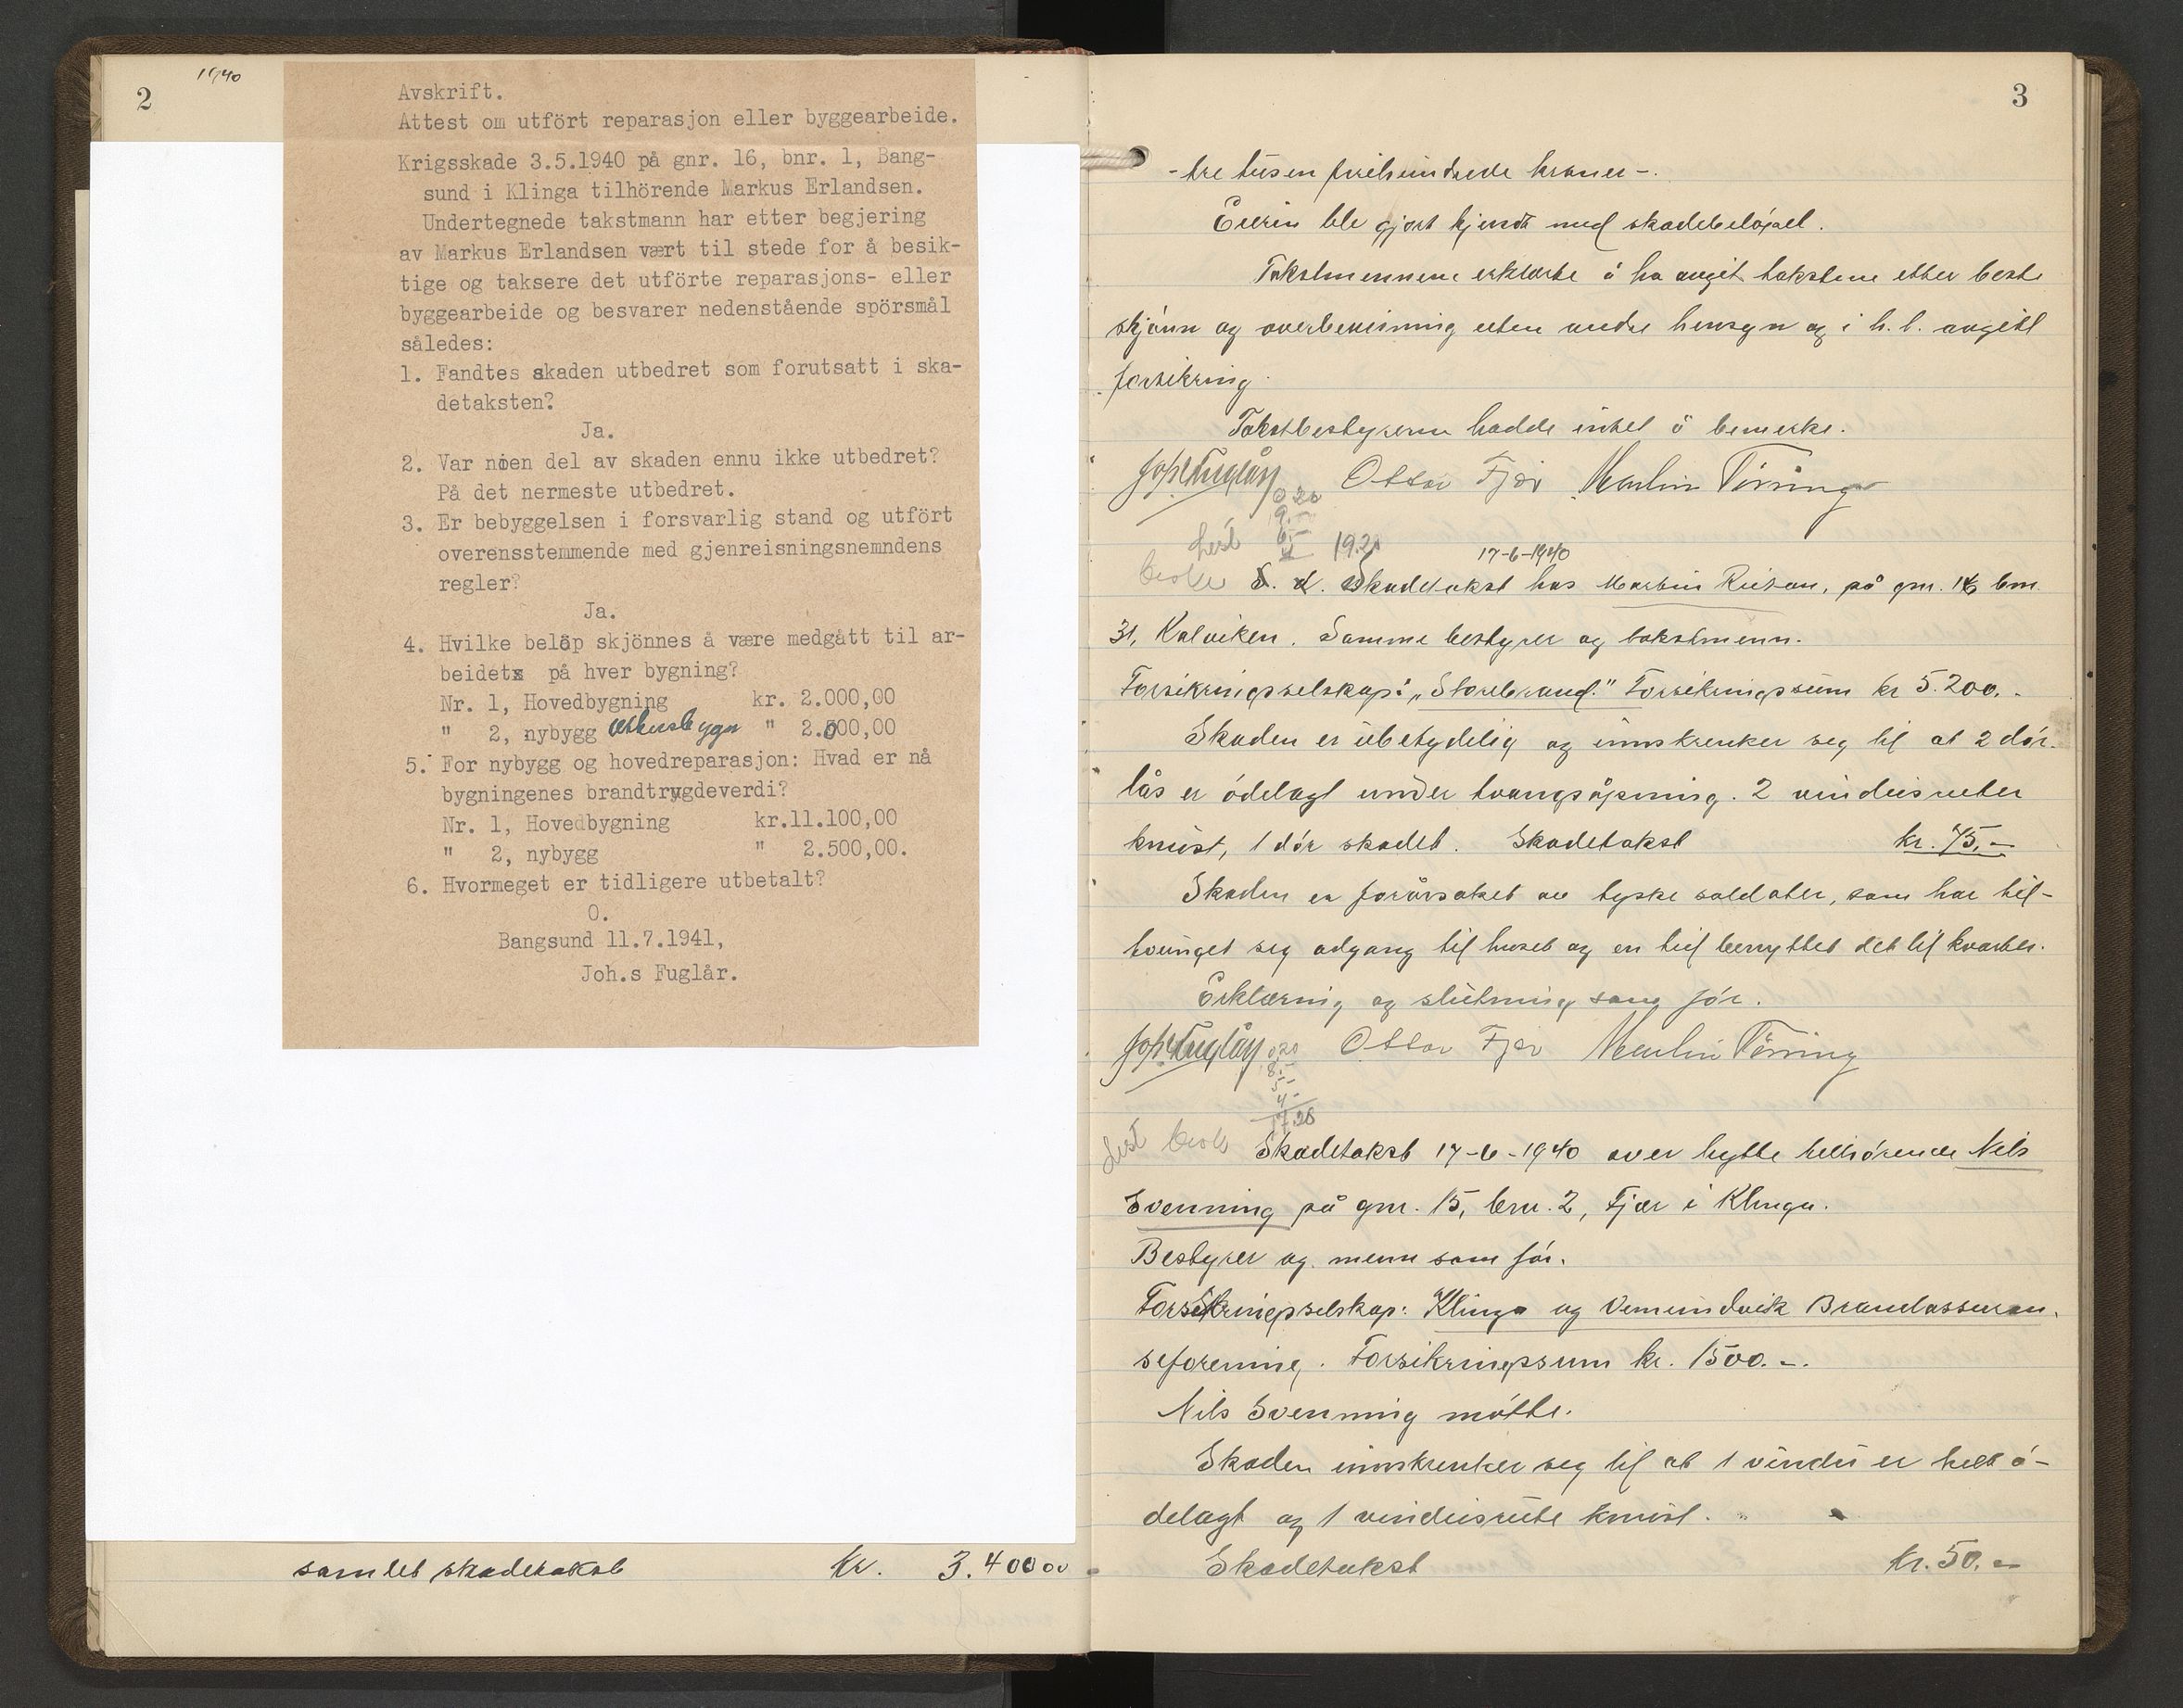 1940
2
Avskrift.
Attest om utfört reparasjon eller byggearbeide.
Krigsskade 3.5.1940 på gnr. 16, bnr. 1, Bang-
sund i Klinga tilhörende Markus Erlandsen.
Undertegnede takstmann har etter begjering
av Markus Erlandsen vært til stede for å besik-
tige og taksere det utförte reparasjons- eller
byggearbeide og besvarer nedenstående spörsmål
således:
1. Fandtes skaden utbedret som forutsatt i ska-
detaksten?
Ja.
2. Var noen del av skaden ennu ikke utbedret?
På det nermeste utbedret.
3. Er bebyggelsen i forsvarlig stand og utfört
overensstemmende med gjenreisningsnemndens
regler?
Ja.
4. Hvilke belöp skjönnes å være medgått til ar-
beidetx på hver bygning?
Nr. 1, Hovedbygning kr. 2.000,00
" 2, nybygg " 2.000,00
5. For nybygg og hovedreparasjon: Hvad er nå
bygningenes brandtrygdeverdi?
Nr. 1, Hovedbygning kr.11.100,00
" 2, nybygg " 2.500,00.
6. Hvormeget er tidligere utbetalt?
0.
Bangsund 11.7.1941,
Joh.s Fuglår.
samlet skadetakst Kr. 3.400 00
3
-tre tusen firehundrede kroner-.
Eieren ble gjort kjendt med skadebelöpet.
Takstmennene erklærte å ha avgit takstene etter beste
skjönn og overbevisning uten andre hensyn og i h.t. avgitt
forsikring.
Takstbestyreren hadde intet å bemerke.
Johs Fuglår Ottar Fjær Martin Törring
0.20
9.-
6.-
4
19.20
Lest
17-6-1940
S. d. Skadetakst hos Martin Ruisan, på gnr. 16 bnr.
31, Kalviken. Samme bestyrer og takstmenn.
Forsikringsselskap: „Storebrand." Forsikringssum kr 5.200.-
Skaden er ubetydelig og innskrenker seg til at 2 dör-
lås er ödelagt under tvangsåpning. 2 vindusruter
knust, 1 dör skadet. Skadetakst kr. 75.-
Skaden er forårsaket av tyske soldater, som har til-
tvunget seg adgang til huset og en tid benyttet det til kvarter.
Erklæring og slutning som för.
Johs Fuglår Ottar Fjær Martin Törring
0.20
8.-
5-
4-
17.20
Lest
Skadetakst 17-6-1940 over hytte tilhörende Nils
Svenning på gnr. 15, bnr. 2, Fjær i Klinga.
Bestyrer og menn som för.
Forsikringsselskap: Klinga og Vemundvik Brandassuran-
seforening. Forsikringssum kr. 1500.-.
Nils Svenning mötte.
Skaden innskrenker seg til at 1 vindu er helt ö-
delagt og 1 vindusrute knust.
Skadetakst kr. 50.-